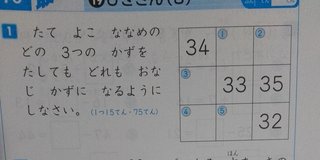 ひきざん(3)
1
たて よこ ななめの
どの 3つの かずを
たしても どれも おな
じ かずに なるように
しなさい。(1つ15てん・75てん)
34 ① ②
③ 33 35
④ ⑤ 32